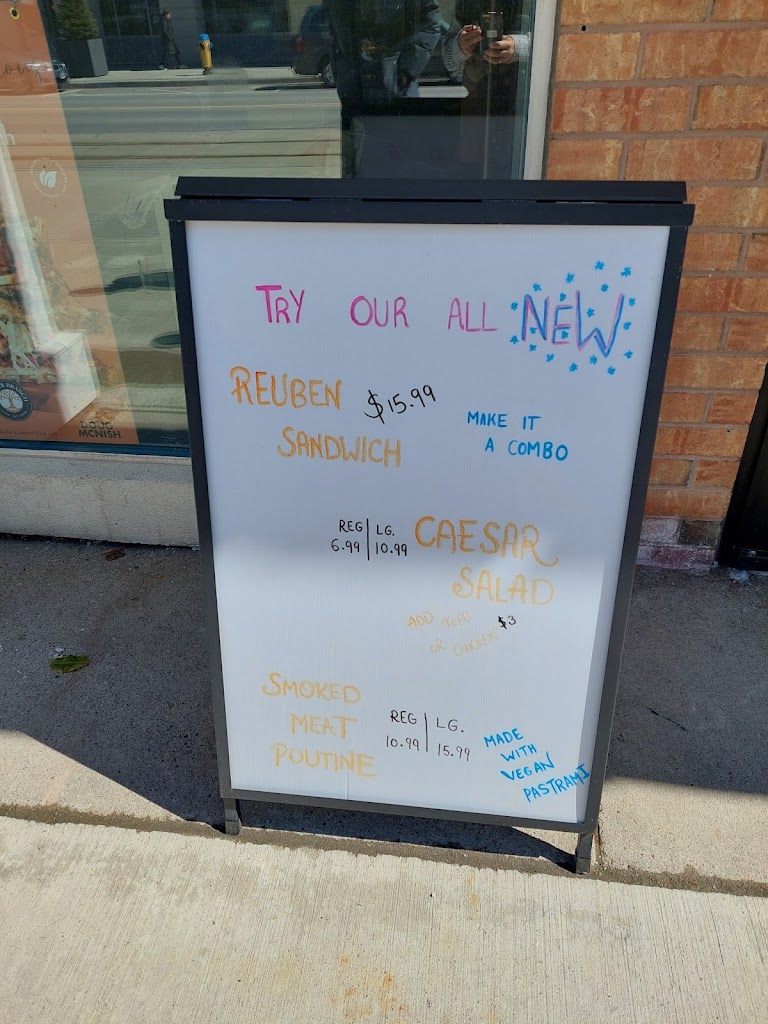 TRY OUR ALL NEW
REUBEN $15.99
SANDWICH
MAKE IT
A COMBO
REG | LG.
6.99 | 10.99
CAESAR
SALAD
ADD TOFU
OR CHICKEN $3
SMOKED
MEAT
POUTINE
REG | LG.
10.99 | 15.99
MADE
WITH
VEGAN
PASTRAMI
DOUG
MCNISH